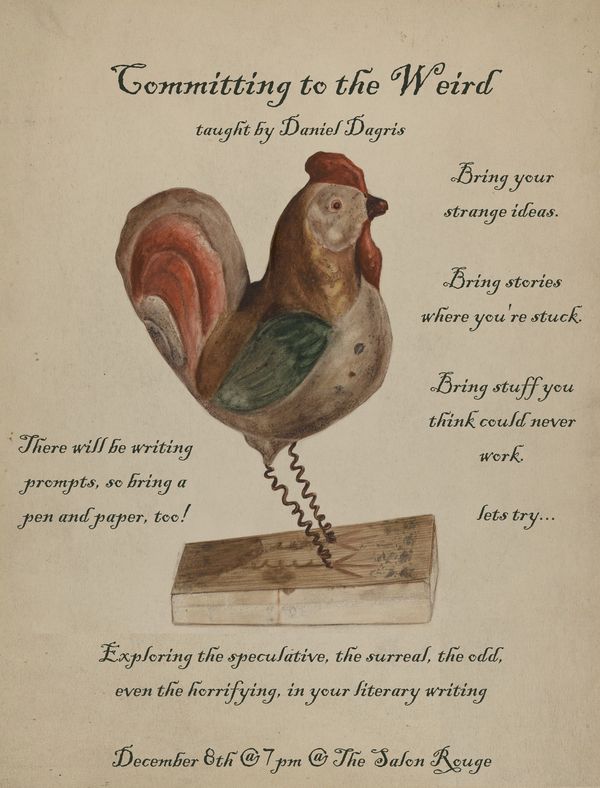 Committing to the Weird
taught by Daniel Dagris
Bring your
strange ideas.
Bring stories
where you're stuck.
Bring stuff you
think could never
work.
lets try...
There will be writing
prompts, so bring a
pen and paper, too!
Exploring the speculative, the surreal, the odd,
even the horrifying, in your literary writing
December 8th @ 7pm @ The Salon Rouge